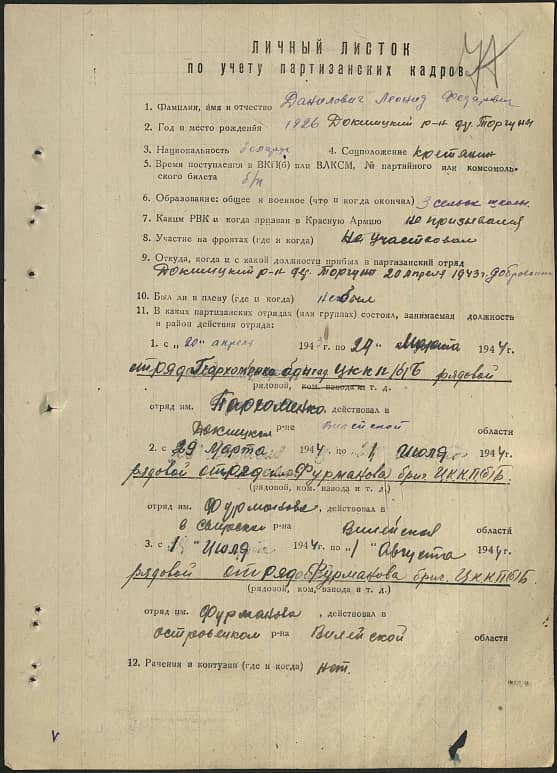 ЛИЧНЫЙ ЛИСТОК
по учету партизанских кадров
1. Фамилия, имя и отчество Данилович Леонид Федорович
2. Год и место рождения 1926 Докшицкий р-н ду. Торгуны
3. Национальность 4. Соцположение крстянин
5. Время поступления в ВКП(б) или ВЛКСМ, № партийного или комсомоль-
ского билета б/п
6. Образование: общее и военное (что и когда окончил) 3 сельск
7. Каким РВК и когда призван в Красную Армию Не призывался
8. Участие на фронтах (где и когда) Не участвовал
9. Откуда, когда и с какой должности прибыл в партизанский отряд
Докшицкий р-н ду. Торгуны 20 апреля 1943 г.
10. Был ли в плену (где и когда) не был
11. В каких партизанских отрядах (или группах) состоял, занимаемая должность
и район действия отряда:
1. с „20" апреля 1943 г. по 29 Марта 1944 г.
отряда Пархоменко ЦККП(б)Б рядовой
рядовой, ком. взвода и т. д.
отряд им. Пархоменко, действовал в
Докшицком р-не Вилейской области
2. с 29 Марта 1944 г. по „1 Июля 1944 г.
рядовой отряд Фурманова бриг. ЦККП(б)Б.
(рядовой, ком. взвода и т. д.)
отряд им. Фурманова, действовал в
в р-на Вилейская области
3. с „1" Июля 1944 г. по „1" Августа 1944 г.
рядовой отряд Фурманова бриг. ЦККП(б)Б.
(рядовой, ком. взвода и т. д.)
отряд им. Фурманова, действовал в
островецком р-на Вилейской области
12. Рачения и контузия (где и когда) нет.